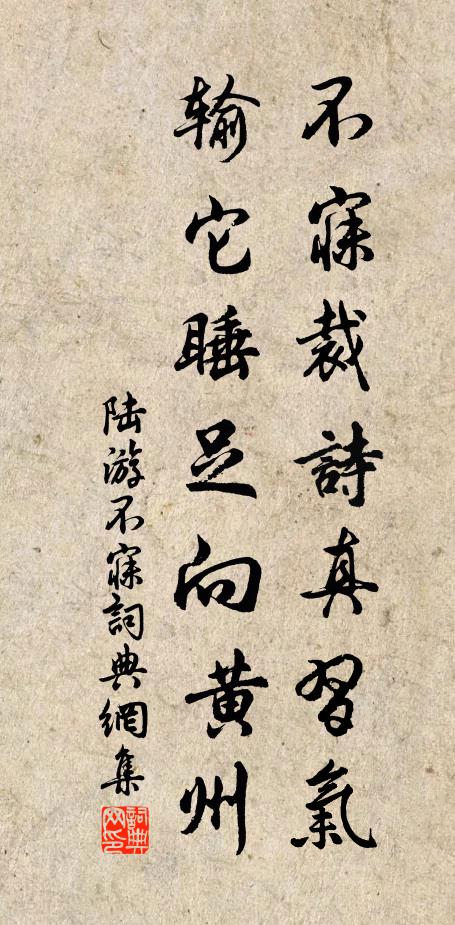 不寐裁詩真習氣
输它睡足向黄州
陆游不寐詞典網集
詞典网印